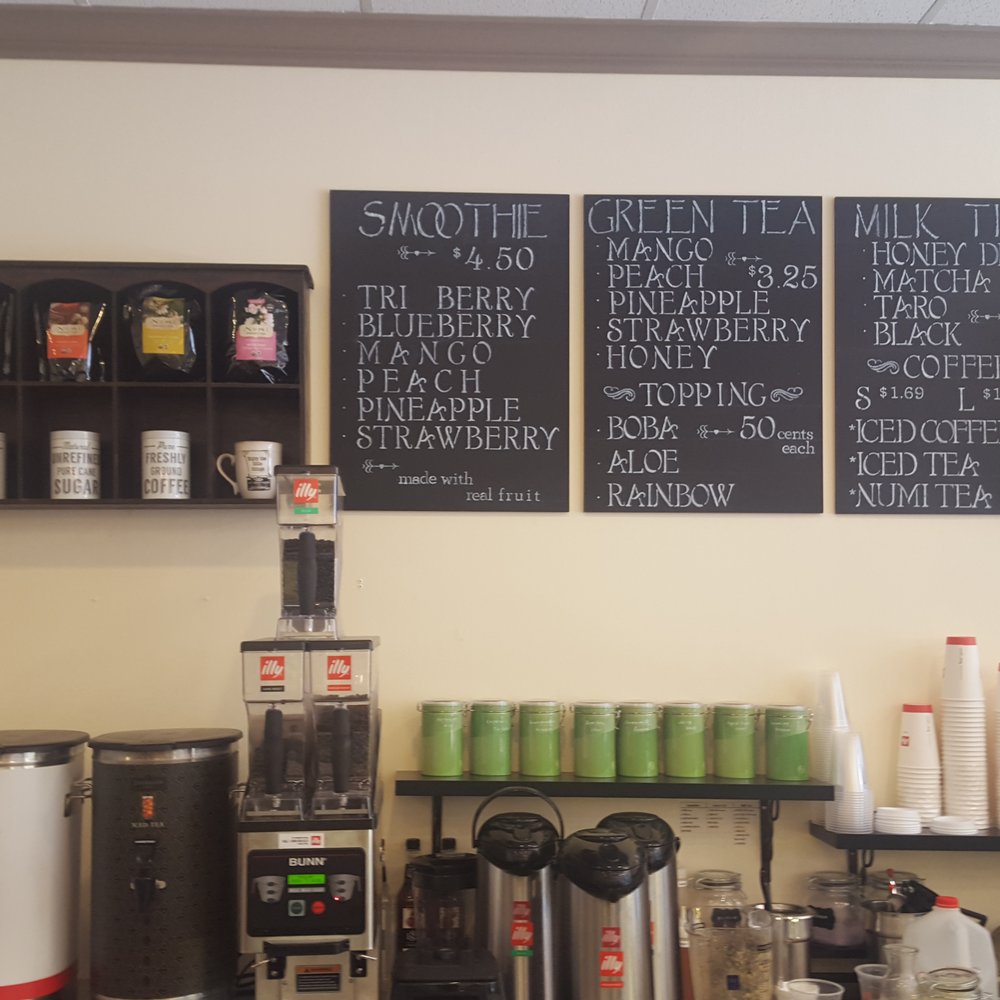 SMOOTHIE
$4.50
· TRI BERRY
· BLUEBERRY
· MANGO
· PEACH
· PINEAPPLE
· STRAWBERRY
made with
real fruit
GREEN TEA
· MANGO
· PEACH $3.25
· PINEAPPLE
· STRAWBERRY
· HONEY
TOPPING
· BOBA 50 cents
each
· ALOE
· RAINBOW
MILK
· HONEY
· MATCHA
· TARO
· BLACK
COFFEE
S $1.69 L
*ICED COFFEE
*ICED TEA
*NUMI TEA
UNREFINED
PURE CANE
SUGAR
FRESHLY
GROUND
COFFEE
illy
illy
illy
NUMI TEA
BUNN
illy
illy
illy
illy
illy